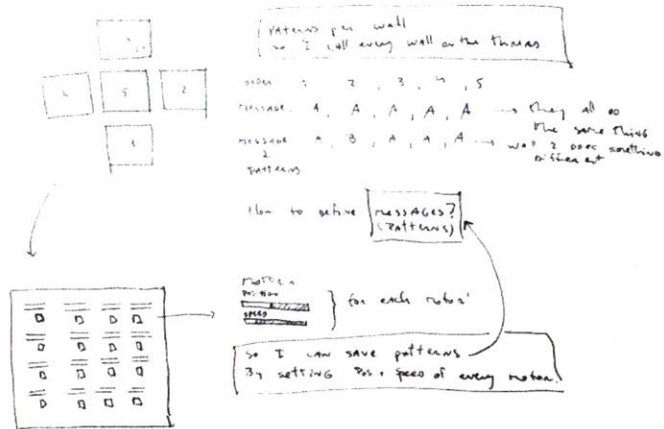 patterns per wall
so I call every wall or the threads
1
4 5 2
3
order 1 2 , 3 , 4 , 5
message. A , A , A , A , A → they all do
the same thing
message A , B , A , A , A → wall 2 does something
2 different
patterns
How to define messages?
(Patterns)
motor 1
position
speed
for each motor!
so I can save patterns
By setting Pos + speed of every motor.